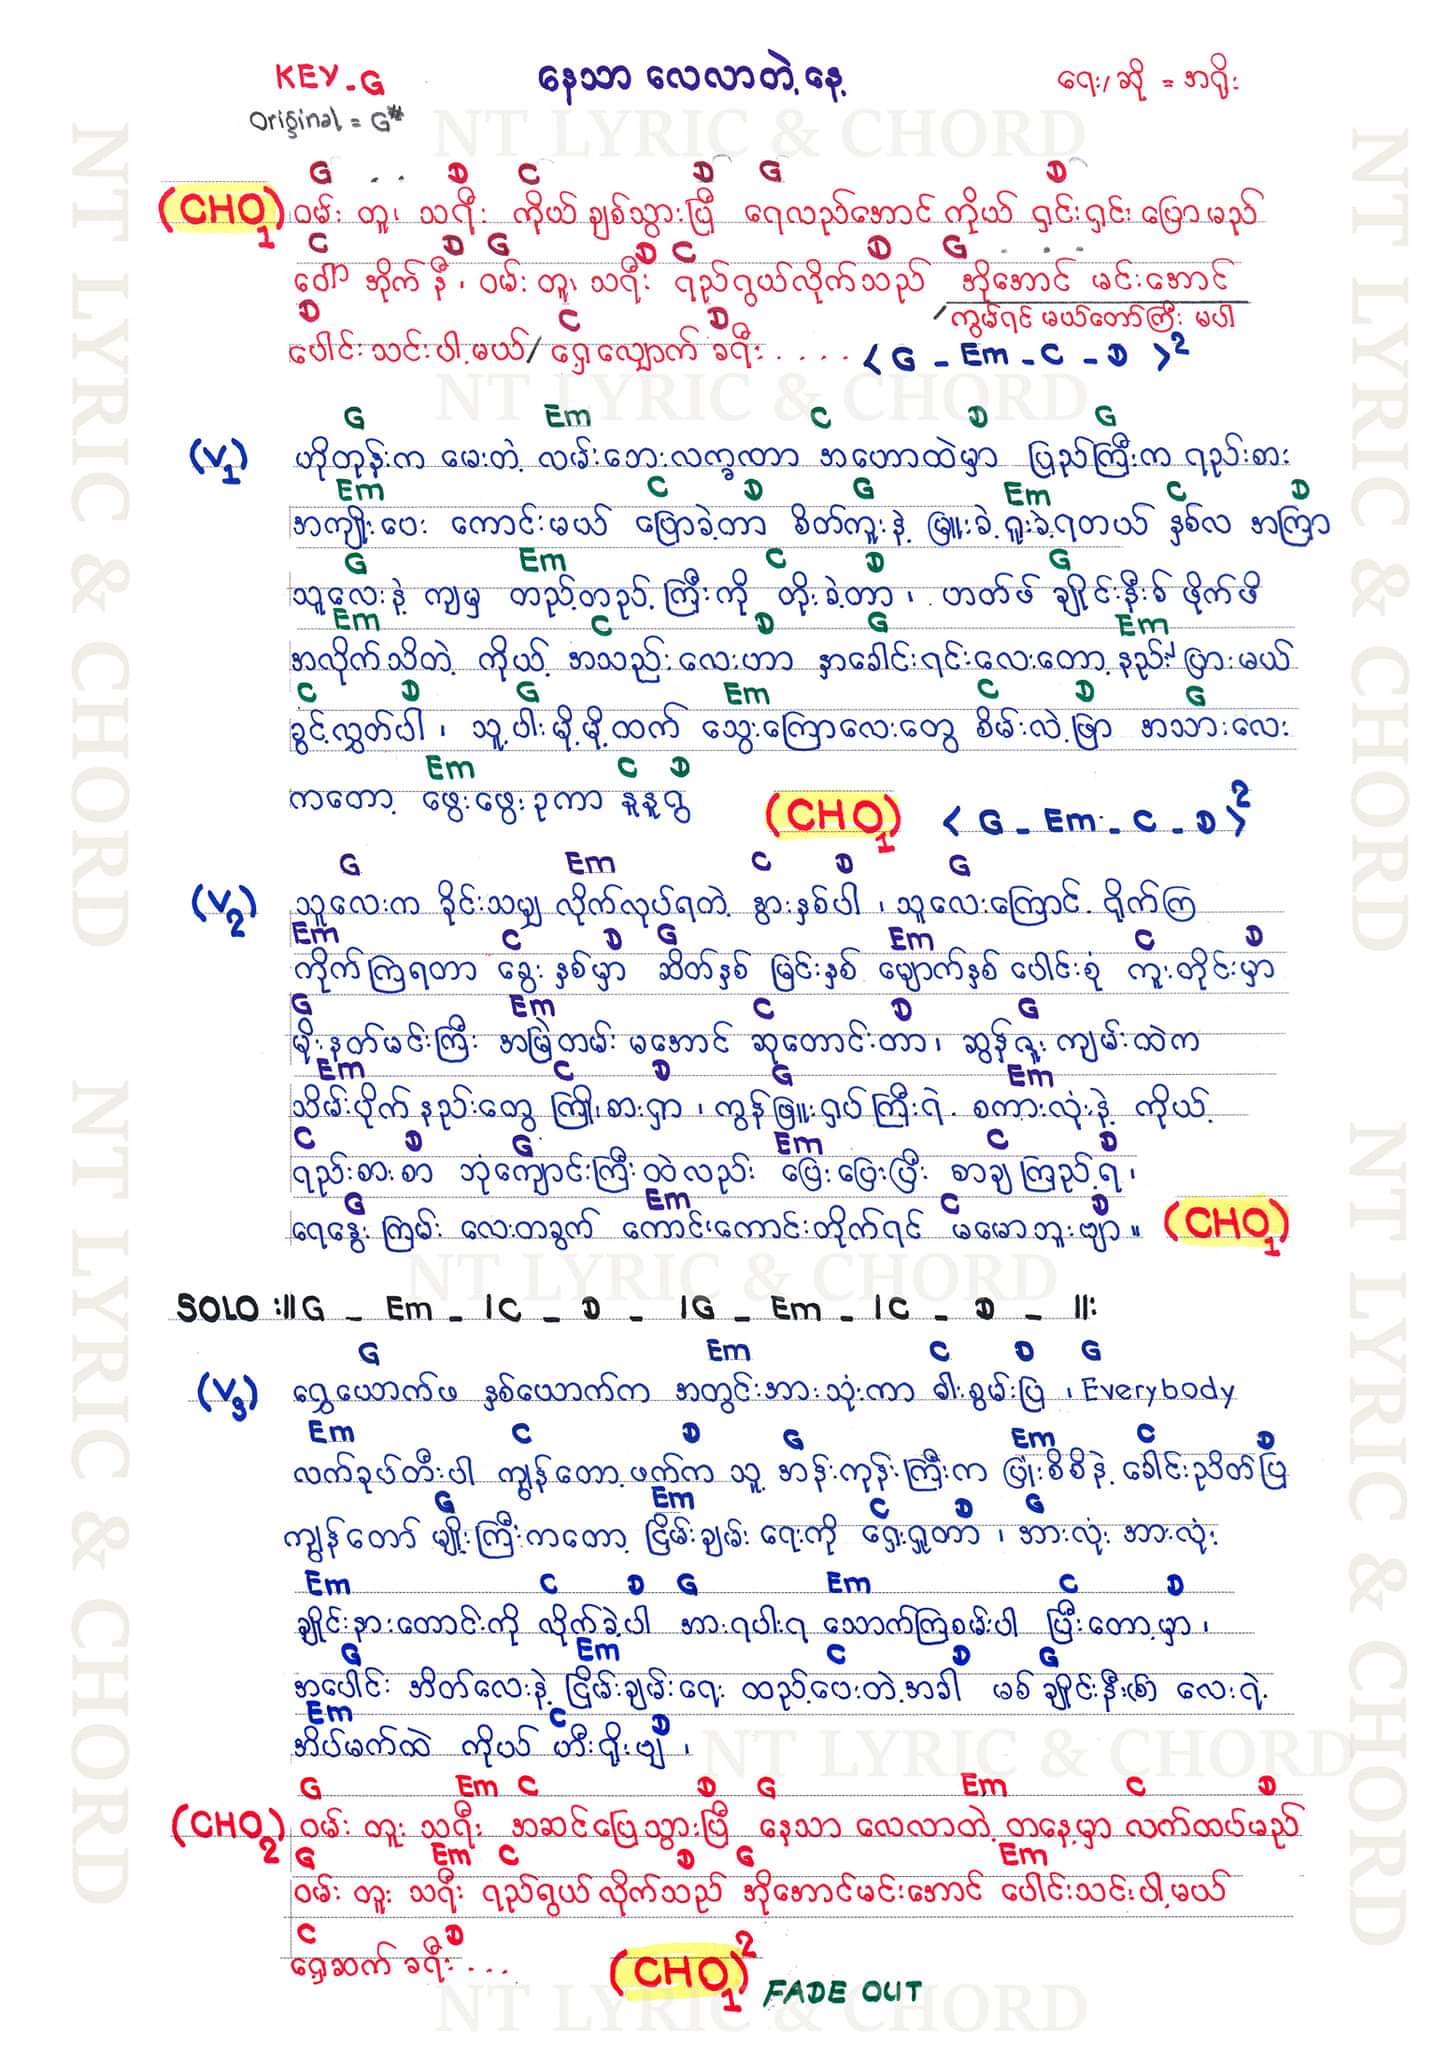 KEY - G
နေသာ လေလာတဲ့ နေ့
ရေး/ဆို = အရိုး
Original = G#
NT LYRIC & CHORD
G . . D C D G D
(CHO1) ဝမ်း တူး သရီး ကိုယ် ချစ်သွားပြီ ရေလည်အောင် ကိုယ် ရှင်းရှင်း ပြောမည်
C D G D C D G . . . .
ဝေါ အိုက် နီ ၊ ဝမ်း တူ၊ သရီး ရည်ရွယ်လိုက်သည် အိုအောင် မင်းအောင်
/ကွမ်ရင် မယ်တော်ကြီး မပါ
D C D
ပေါင်းသင်းပါ့မယ်/ ရှေ့လျှောက် ခရီး . . . . < G - Em - C - D >2
NT LYRIC & CHORD
G Em C D G
(V1) ဟိုတုန်းက မေးတဲ့ လမ်းဘေးလက္ခဏာ အဟောထဲမှာ ပြည်ကြီးက ရည်းစား
Em C D G Em C D
အကျိုးပေး ကောင်းမယ် ပြောခဲ့တာ စိတ်ကူးနဲ့ မြူးခဲ့ ရူးခဲ့ရတယ် နှစ်လ အကြာ
G Em C D G
သူလေးနဲ့ ကျမှ တည့်တည့်ကြီးကို တိုးခဲ့တာ ၊ ဟတ်ဖ် ချိုင်းနီးစ် ဖိုက်ဖိ
Em C D G Em
အလိုက်သိတဲ့ ကိုယ့် အသည်းလေးဟာ နှာခေါင်းရင်းလေးတော့ နည်းနည်းပြားမယ်
C D G Em C D G
ခွင့်လွှတ်ပါ ၊ သူ့ပါးမို့မို့ထက် သွေးကြောလေးတွေ စိမ်းလဲ့ဖြာ အသားလေး
Em C D
ကတော့ ဖွေးဖွေးဥကာ နူနူရွ (CHO1) < G - Em - C - D >2
G Em C D G
(V2) သူလေးက ခိုင်းသမျှ လိုက်လုပ်ရတဲ့ နွားနှစ်ပါ ၊ သူလေးကြောင့် ရိုက်ကြ
Em C D G Em C D
ကိုက်ကြရတာ ခွေးနှစ်မှာ ဆိတ်နှစ် မြင်းနှစ် မျောက်နှစ် ပေါင်းစုံ ကူးတိုင်းမှာ
G Em C D G
မိုးနတ်မင်းကြီး အမြဲတမ်း မအောင် ဆုတောင်းတာ၊ ဆွန်ဇူး ကျမ်းထဲက
Em C D G Em
သိမ်းပိုက်နည်းတွေ ကြိုးစားရှာ ၊ ကွန်ဖြူးရှပ်ကြီးရဲ့ စကားလုံးနဲ့ ကိုယ့်
C D G Em C D
ရည်းစားစာ ဘုံကျောင်းကြီးထဲလည်း ပြေးပြေးပြီး စာချကြည့်ရ၊
G Em C D
ရေနွေးကြမ်း လေးတခွက် ကောင်းကောင်းတိုက်ရင် မမောဘူးဗျာ ။ (CHO1)
NT LYRIC & CHORD
SOLO :||G - Em - |C - D - |G - Em - |C - D - ||:
G Em C D G
(V3) ရွှေယောက်ဖ နှစ်ယောက်က အတွင်းအားသုံးကာ ဓါးစွမ်းပြ ၊ Everybody
Em C D G Em C D
လက်ခုပ်တီးပါ ကျွန်တော့ဖက်က သူ့ အန်းကုန်းကြီးက ပြုံးစိစိနဲ့ ခေါင်းညိတ်ပြ
G Em C D G
ကျွန်တော် မျိုးကြီးကတော့ ငြိမ်းချမ်း ရေးကို ရှေးရှုတာ ၊ အားလုံး အားလုံး
Em C D G Em C D
ချိုင်းနားတောင်းကို လိုက်ခဲ့ပါ အားရပါးရ သောက်ကြစမ်းပါ ပြီးတော့မှာ ၊
G Em C D G
အပေါင်း အိတ်လေးနဲ့ ငြိမ်းချမ်းရေး ထည့်ပေးတဲ့အခါ မစ် ချိုင်းနီး(စ်) လေးရဲ့
Em C D
အိပ်မက်ထဲ ကိုယ် ဟီးရိုးဗျ ၊
NT LYRIC & CHORD
G Em C D G Em C D
(CHO2) ဝမ်း တူး သရီး အဆင်ပြေသွားပြီ နေသာ လေလာတဲ့ တနေ့မှာ လက်ထပ်မည်
G Em C D G Em
ဝမ်း တူး သရီး ရည်ရွယ်လိုက်သည် အိုအောင်မင်းအောင် ပေါင်းသင်းပါ့မယ်
C D
ရှေ့ဆက် ခရီး . . . (CHO1)2 FADE OUT
NT LYRIC & CHORD
NT LYRIC & CHORD
NT LYRIC & CHORD
NT LYRIC & CHORD
NT LYRIC & CHORD